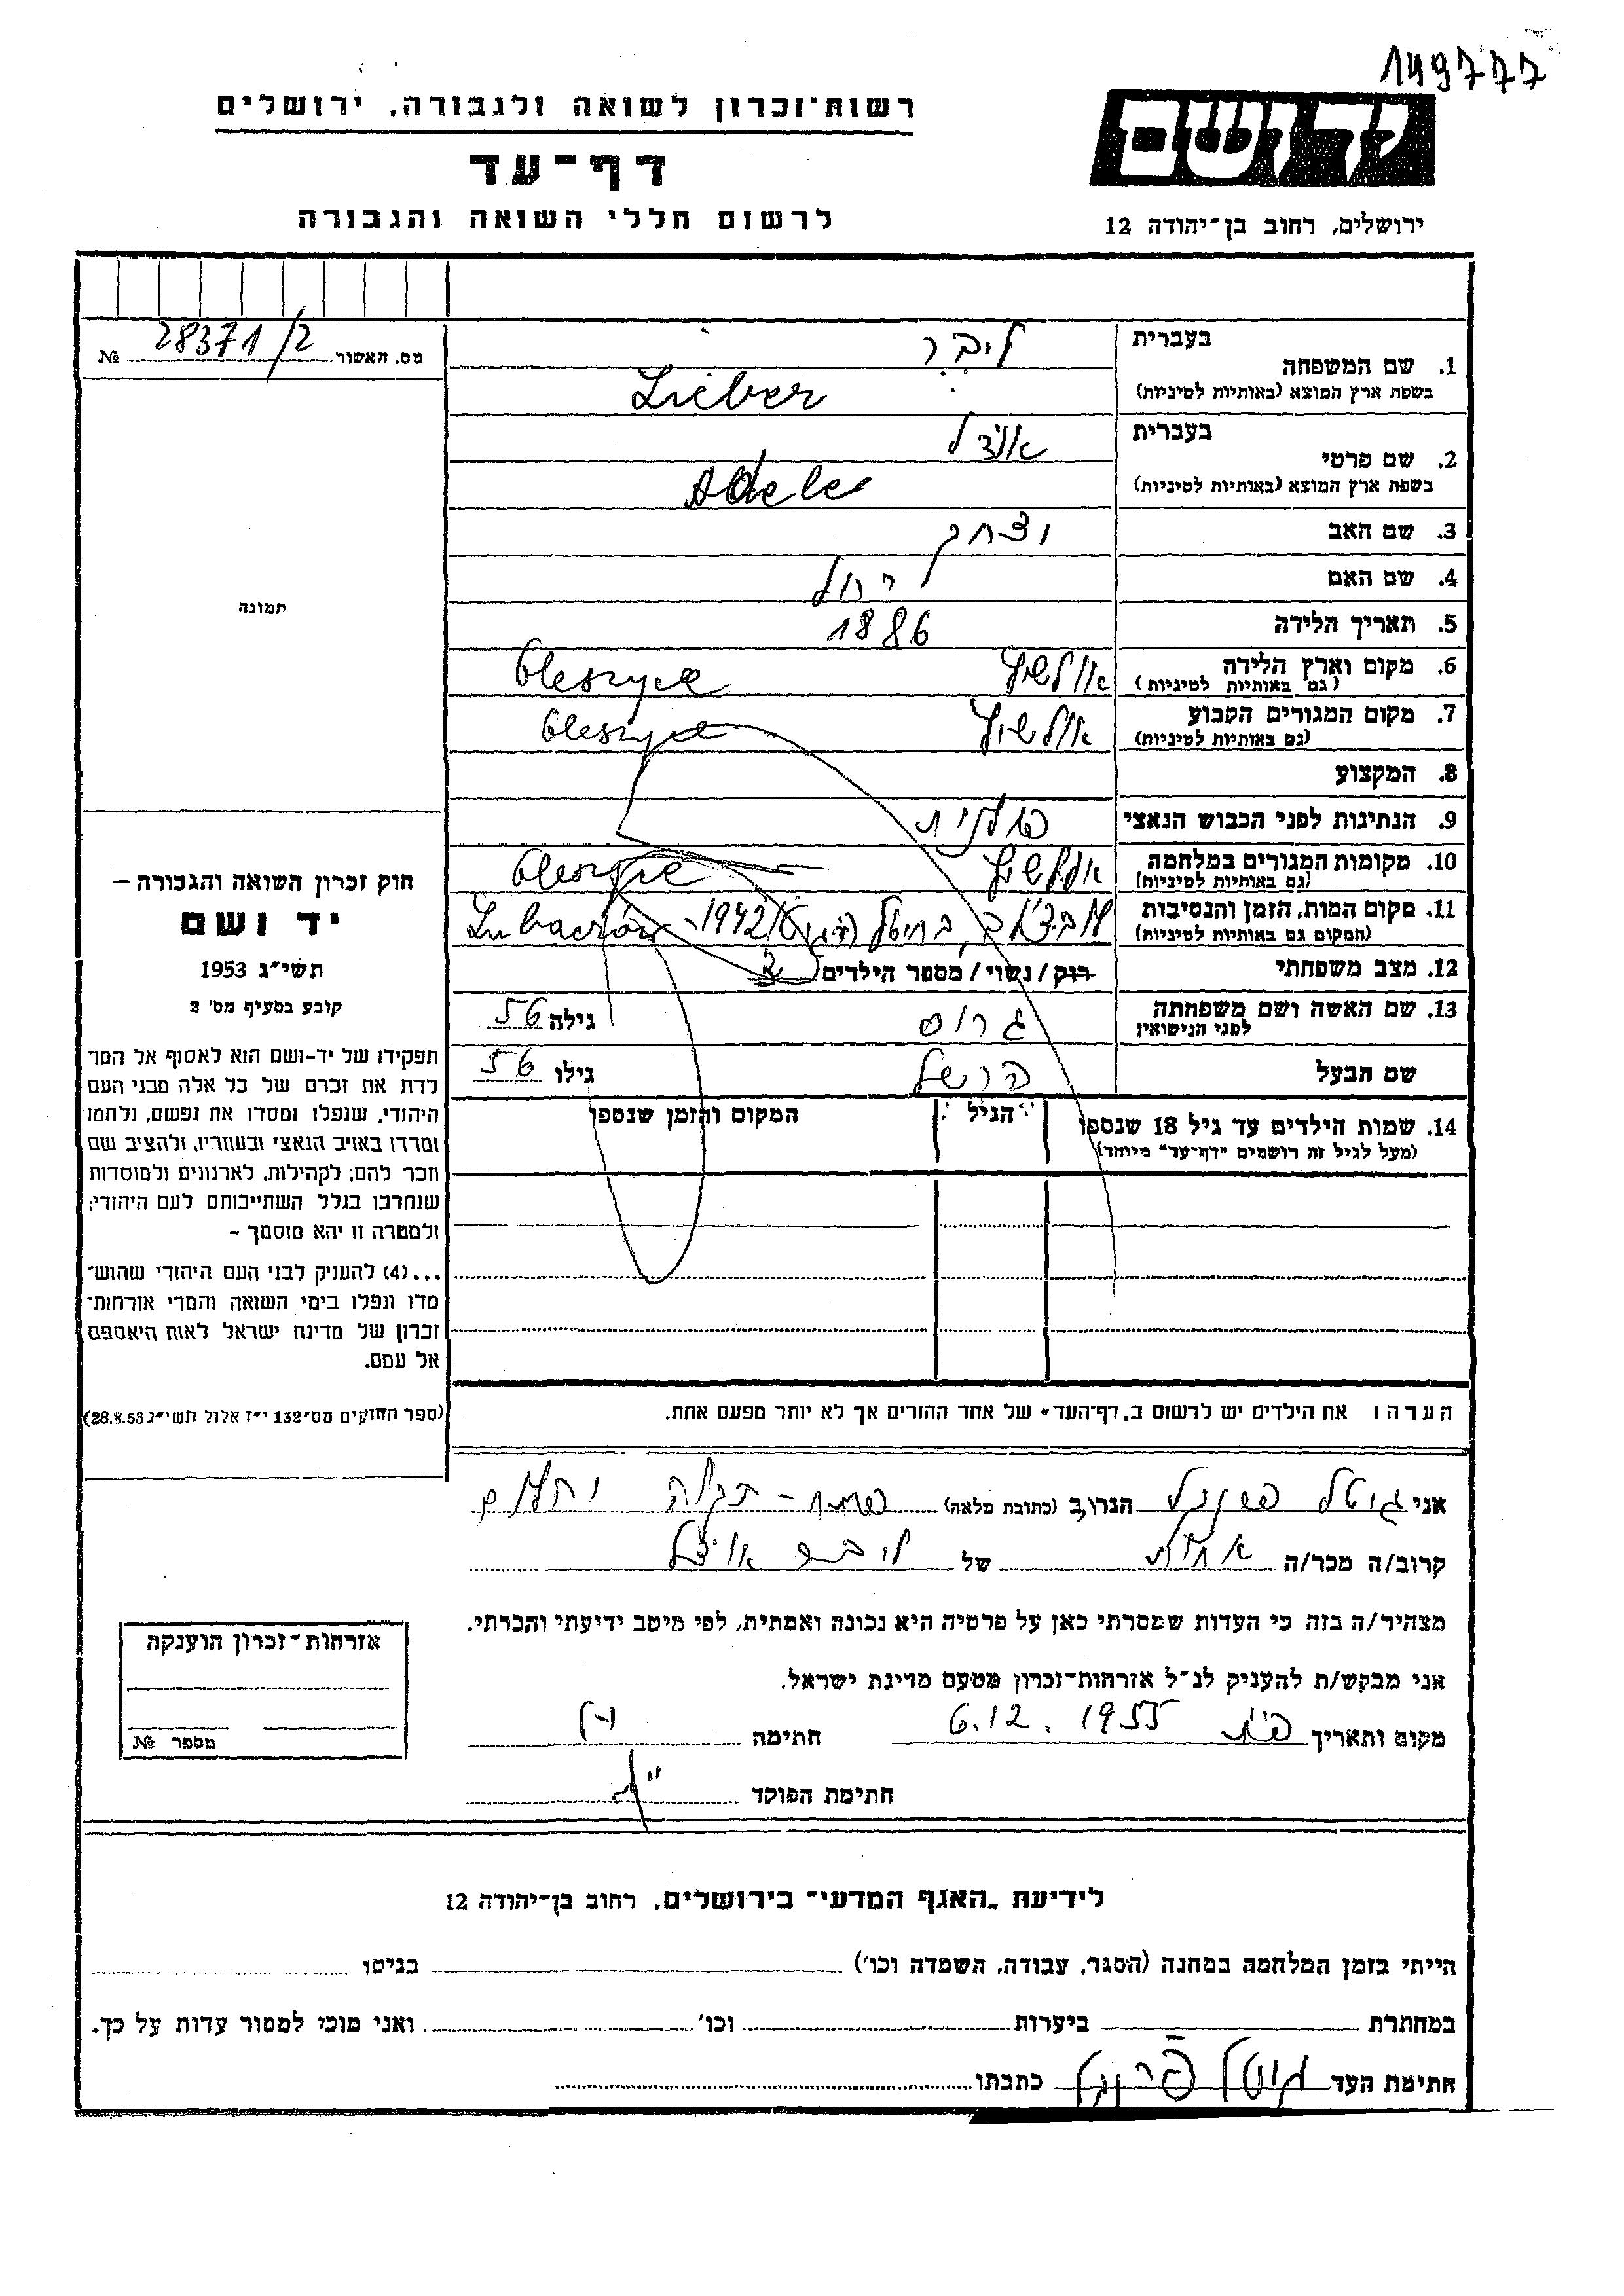 149777
רשות־זכרון לשואה ולגבורה, ירושלים
יד ושם
דף־עד
לרשום חללי השואה והגבורה
ירושלים, רחוב בן־יהודה 12
מס. האשור 28371/2 №
תמונה
חוק זכרון השואה והגבורה –
יד ושם
תשי״ג 1953
קובע בסעיף מס׳ 2
תפקידו של יד-ושם הוא לאסוף אל המו־
לדת את זכרם של כל אלה מבני העם
היהודי, שנפלו ומסרו את נפשם, נלחמו
ומרדו באויב הנאצי ובעוזריו, ולהציב שם
וזכר להם, לקהילות, לארגונים ולמוסדות
שנחרבו בגלל השתייכותם לעם היהודי;
ולמטרה זו יהא מוסמך –
...(4) להעניק לבני העם היהודי שהוש־
מדו ונפלו בימי השואה והמרי אזרחות־
זכרון של מדינת ישראל לאות היאספם
אל עמם.
(ספר החוקים מס׳ 132 י״ז אלול תשי״ג 28.8.53)
בעברית ליבר
1. שם המשפחה
בשפת ארץ המוצא (באותיות לטיניות) Lieber
בעברית אידל
2. שם פרטי
בשפת ארץ המוצא (באותיות לטיניות) Adele
3. שם האב יצחק
4. שם האם רחל
5. תאריך הלידה 1886
6. מקום וארץ הלידה אולשיץ Oleszyce
(גם באותיות לטיניות)
7. מקום המגורים הקבוע אולשיץ Oleszyce
(גם באותיות לטיניות)
8. המקצוע
9. הנתינות לפני הכבוש הנאצי פולנית
10. מקומות המגורים במלחמה אולשיץ Oleszyce
(גם באותיות לטיניות)
11. מקום המות, הזמן והנסיבות 1942 Lubaczów
(המקום גם באותיות לטיניות)
12. מצב משפחתי רוק/נשוי/מספר הילדים 2
13. שם האשה ושם משפחתה גרוס גילה 56
לפני הנישואין
שם הבעל הרשל גילו 56
14. שמות הילדים עד גיל 18 שנספו הגיל המקום והזמן שנספו
(מעל לגיל זה רושמים ״דף־עד״ מיוחד)
הערה: את הילדים יש לרשום ב„דף־העד״ של אחד ההורים אך לא יותר מפעם אחת.
אני גיטל הגר/ה ב (כתובת מלאה)
קרוב/ה מכר/ה אחות של ליבר אידל
מצהיר/ה בזה כי העדות שמסרתי כאן על פרטיה היא נכונה ואמתית, לפי מיטב ידיעתי והכרתי.
אני מבקש/ת להעניק לנ״ל אזרחות־זכרון מטעם מדינת ישראל.
מקום ותאריך 6.12.1955 חתימה
חתימת הפוקד
אזרחות־זכרון הוענקה
מספר №
לידיעת „האגף המדעי״ בירושלים, רחוב בן־יהודה 12
הייתי בזמן המלחמה במחנה (הסגר, עבודה, השמדה וכו׳) בגיטו
במחתרת ביערות וכו׳ ואני מוכן למסור עדות על כך.
חתימת העד גיטל כתבתו